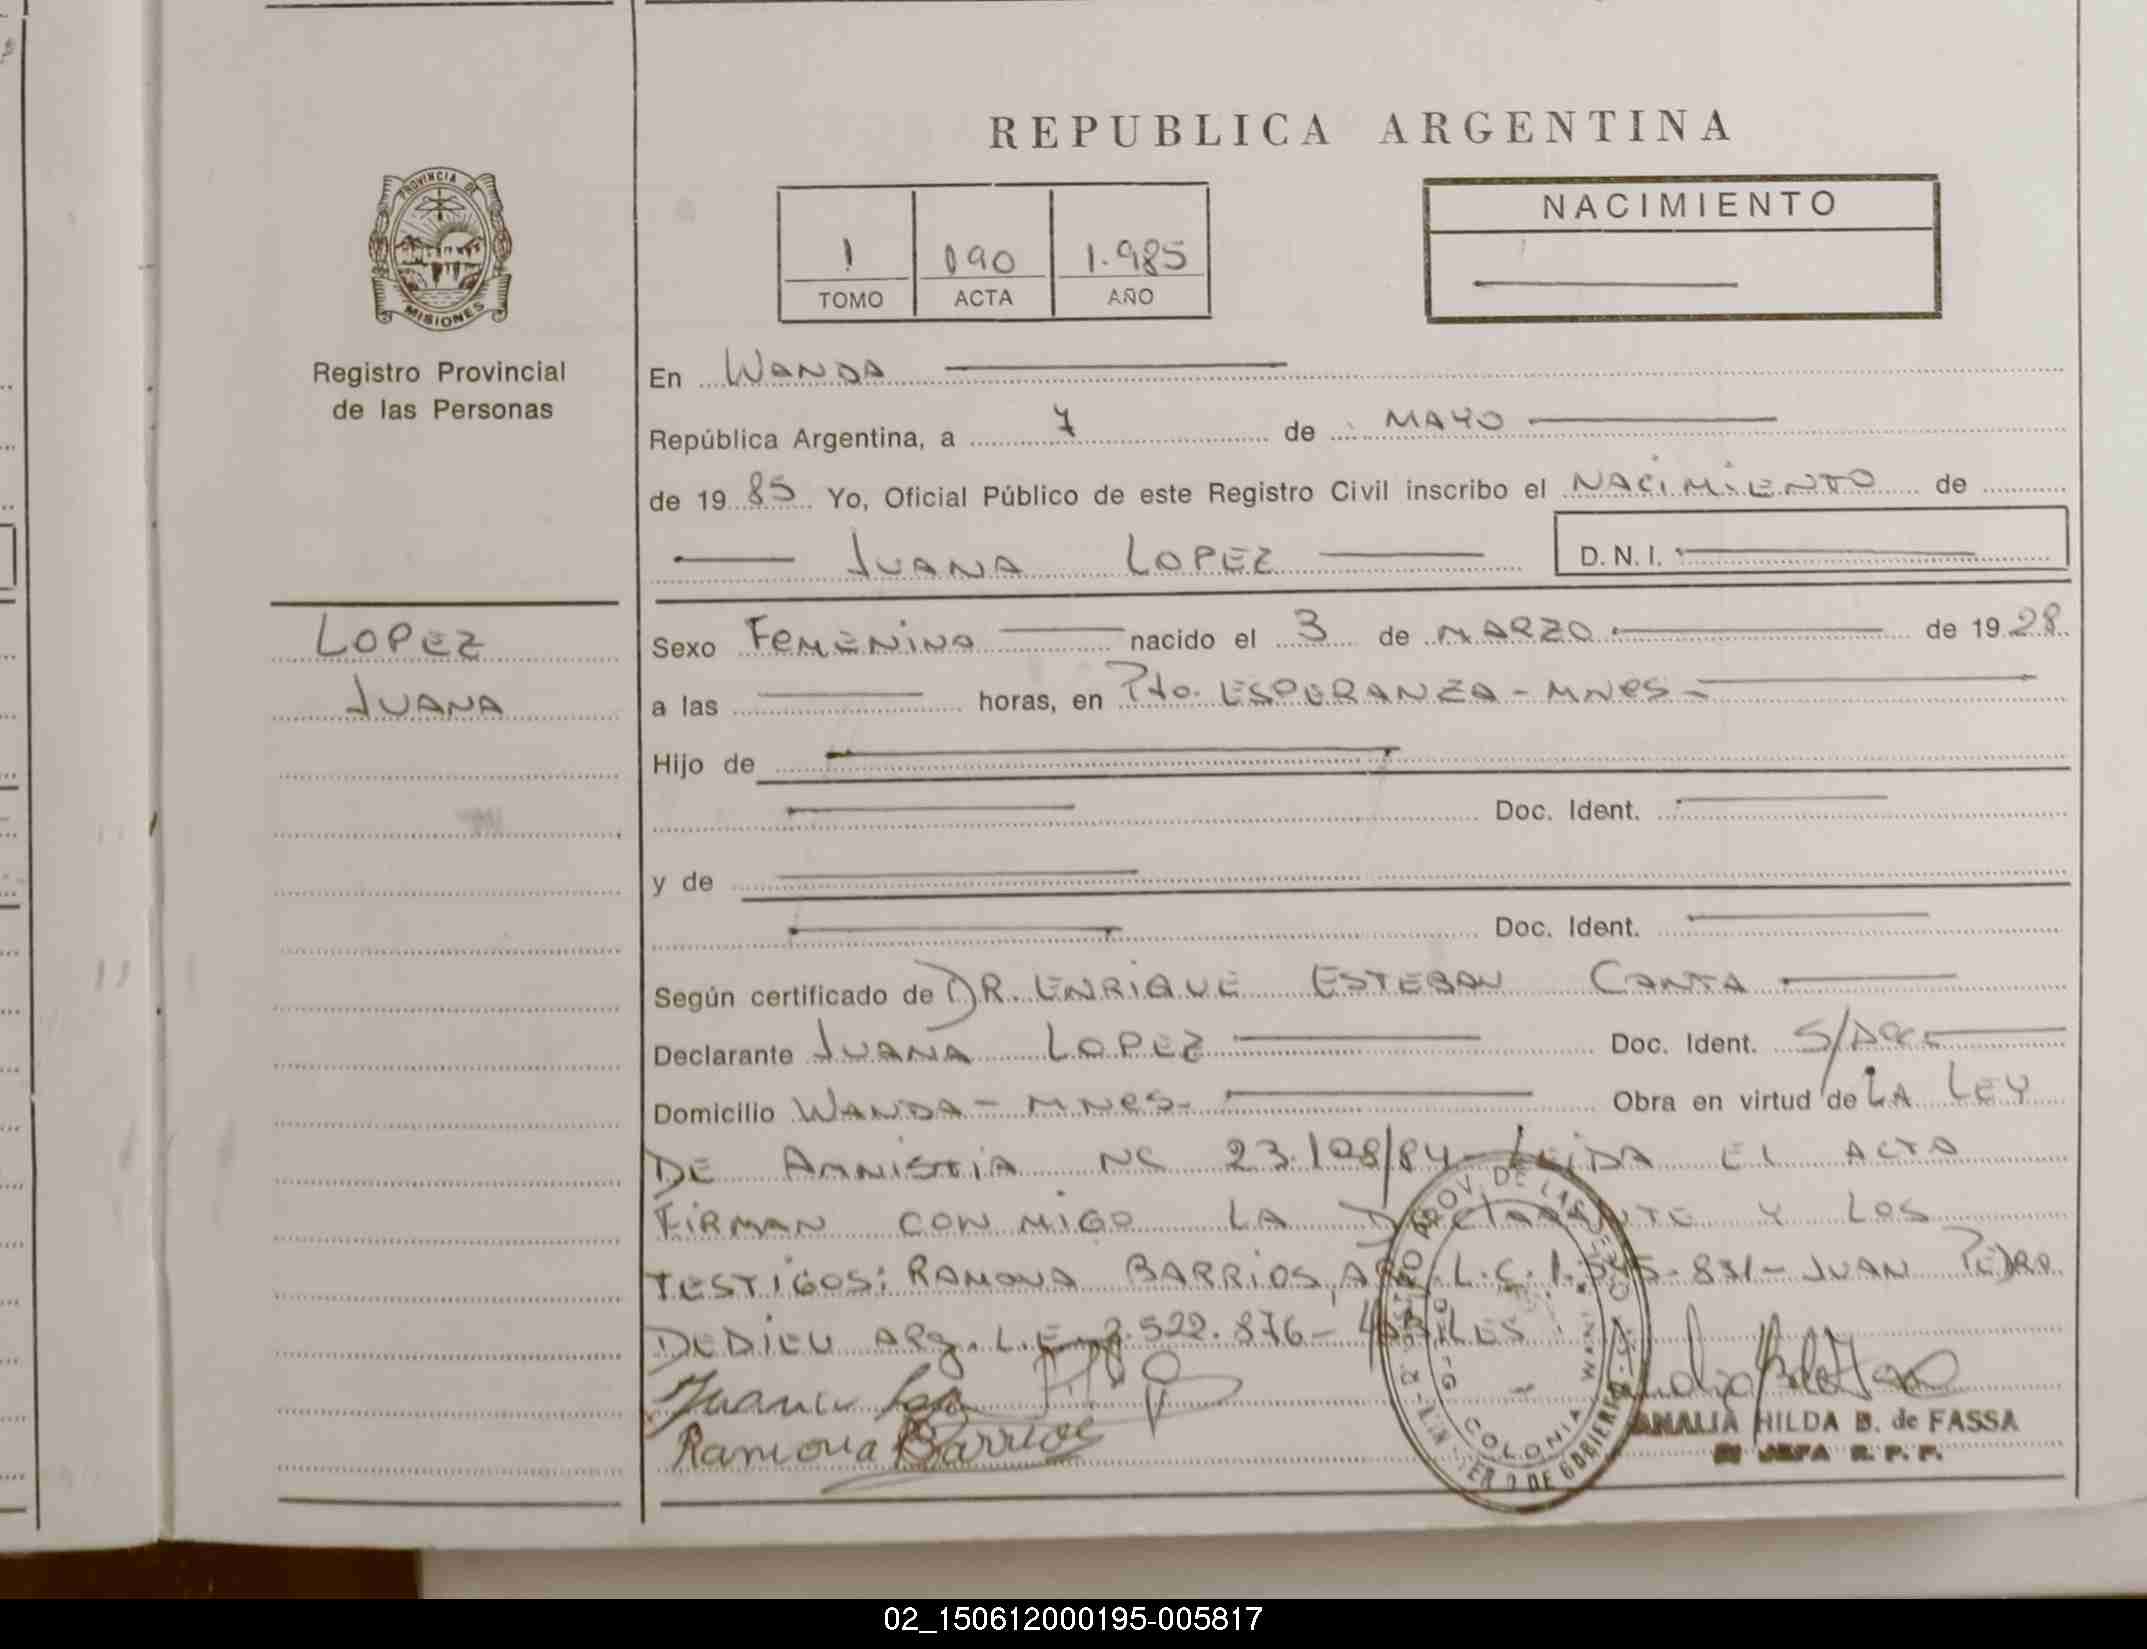 REPUBLICA ARGENTINA
PROVINCIA DE
MISIONES
Registro Provincial
de las Personas
1 090 1.985
TOMO ACTA AÑO
NACIMIENTO
En WANDA
República Argentina, a 7 de MAYO
de 19 85 Yo, Oficial Público de este Registro Civil inscribo el NACIMIENTO de
JUANA LOPEZ D. N. I.
LOPEZ
JUANA
Sexo FEMENINO nacido el 3 de MARZO de 19 28
a las horas, en Pto. ESPERANZA - MNES -
Hijo de
Doc. Ident.
y de
Doc. Ident.
Según certificado de DR. ENRIQUE ESTEBAN CANTA
Declarante JUANA LOPEZ Doc. Ident. S/Doc
Domicilio WANDA - MNES - Obra en virtud de LA LEY
DE AMNISTIA Nº 23.108/84 - LEIDA EL ACTA
FIRMAN CON MIGO LA DECLARANTE Y LOS
TESTIGOS: RAMONA BARRIOS, ARG. L.C. - 831 - JUAN PEDRO
DEDIEU ARG. L.E. .522.876 -
Ramona Barrios
COLONIA WANDA
ANALIA HILDA B. de FASSA
JEFA R. P. P.
02_150612000195-005817